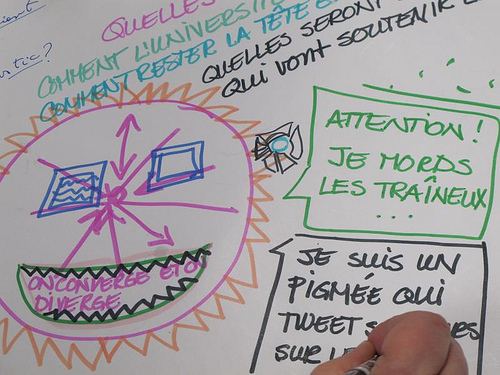 QUELLES
COMMENT L'UNIVERSITÉ
COMMENT RESTER LA TÊTE
QUELLES SERONT
QUI VONT SOUTENIR
ATTENTION !
JE MORDS
LES TRAÎNEUX
...
ON CONVERGE ET ON
DIVERGE
JE SUIS UN
PIGMÉE QUI
TWEET
SUR